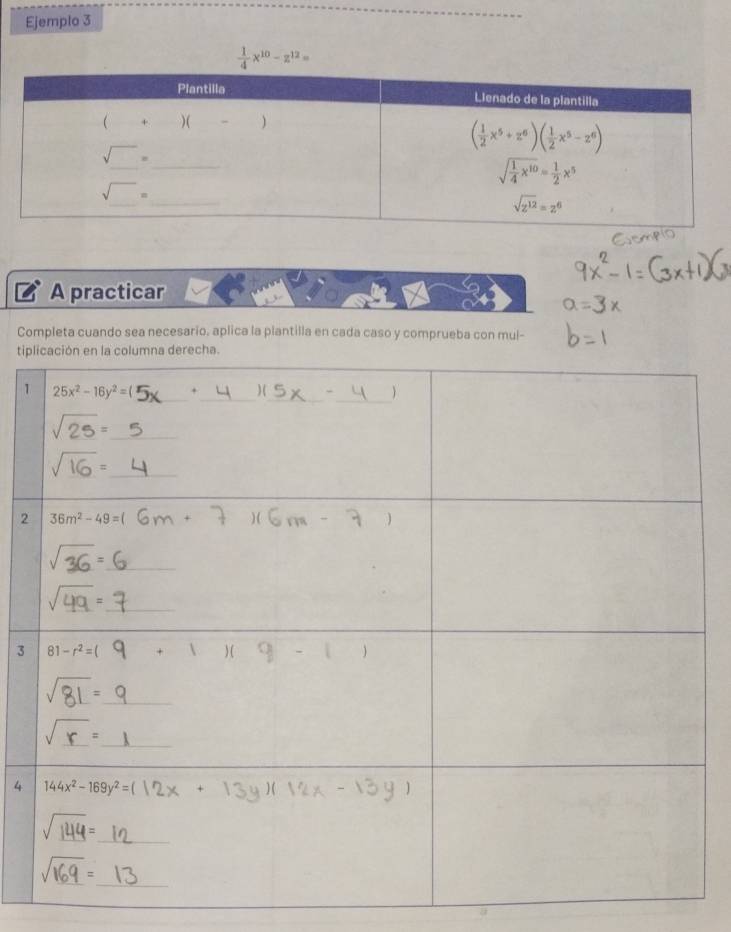 Ejemplo 3
1/4 x¹⁰ − z¹² =
Plantilla
Llenado de la plantilla
( + )( − )
√ = ____
√ = ____
(1/2 x⁵ + z⁶)(1/2 x⁵ − z⁶)
√(1/4 x¹⁰) = 1/2 x⁵
√z¹² = z⁶
Ejemplo
9x² − 1 = (3x+1)(3
a = 3x
b = 1
A practicar
Completa cuando sea necesario, aplica la plantilla en cada caso y comprueba con mul-
tiplicación en la columna derecha.
1 25x² − 16y² = ( 5x + 4 )( 5x − 4 )
√25 = 5
√16 = 4
2 36m² − 49 = ( 6m + 7 )( 6m − 7 )
√36 = 6
√49 = 7
3 81 − r² = ( 9 + 1 )( 9 − 1 )
√81 = 9
√r = 1
4 144x² − 169y² = ( 12x + 13y )( 12x − 13y )
√144 = 12
√169 = 13